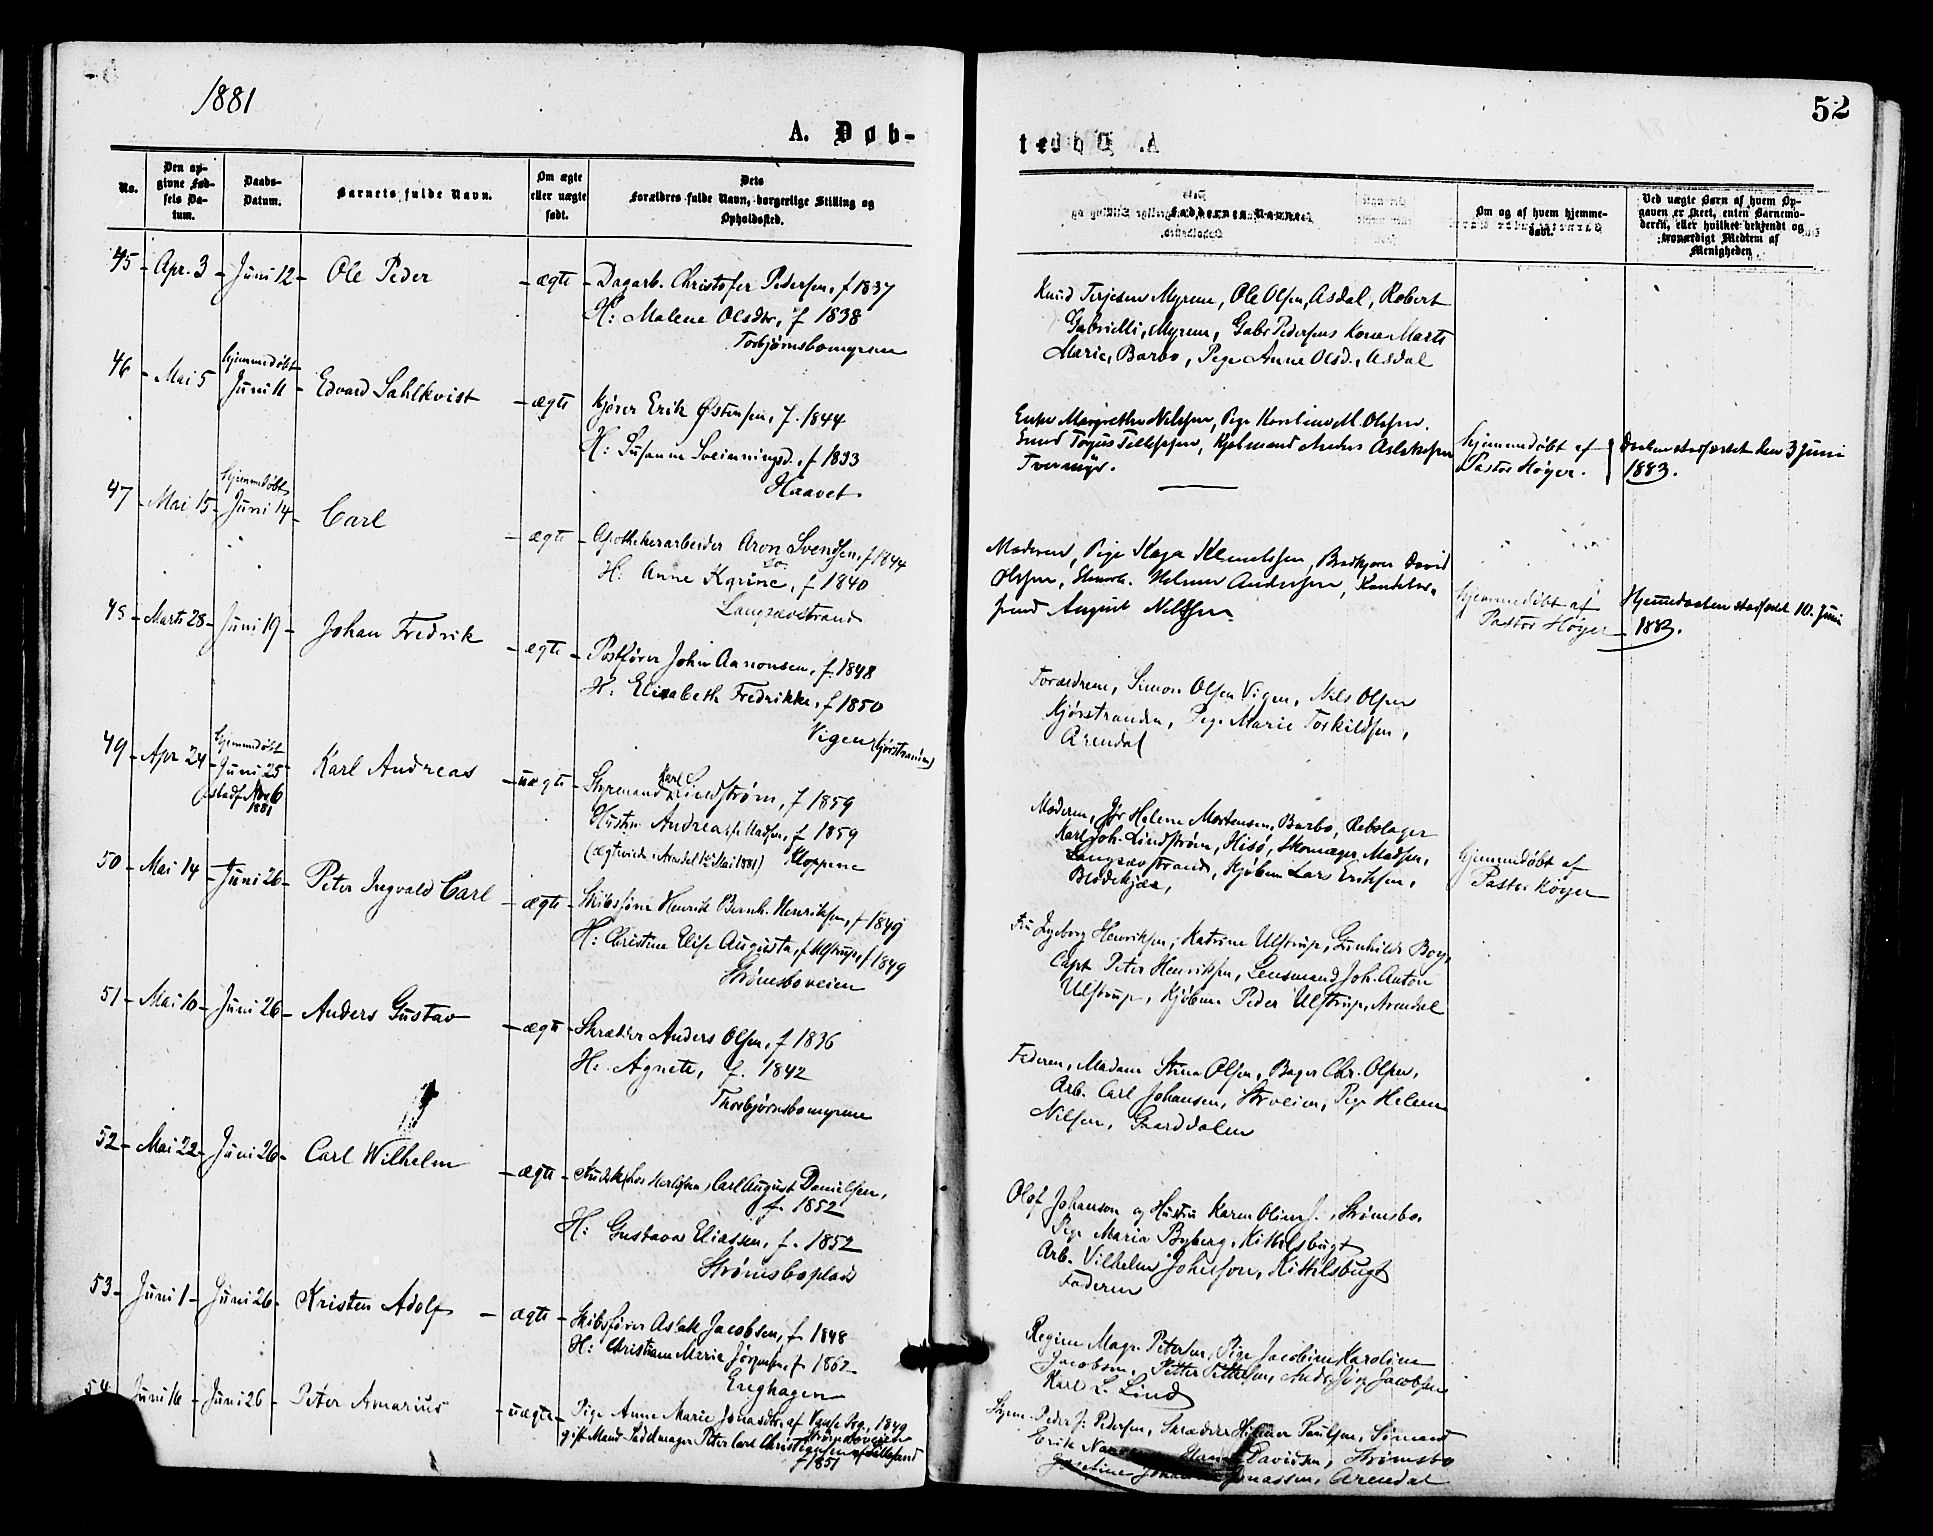 1881
A. Døb-
No.
Den op-
givne Fød-
sels Da-
tum.
Daabs-
Datum.
Barnets fulde Navn.
Om ægte
eller uægte
født.
Dets
Forældres fulde Navn, borgerlige Stilling og
Opholdssted.
45 - Apr. 3 - Juni 12 - Ole Peder - ægte - Dagarb. Christofer Pedersen, f 1837
H: Malene Olsdtr, f 1838
Torbjørnsbomyrene
46 - Mai 5 hjemmedøbt
Juni 11 - Edvard Sahlkvist - ægte Kjører Erik Østensen, f. 1844
H: Susanne Sveinningsd., f 1833
Haavet
47 - Mai 15 - hjemmedøbt
Juni 14 - Carl - ægte - Apothekerarbeider Aron Svendsen, f 1844
H: Anne Karine, f 1840
Langsævstrand
48 - Marts 28 - Juni 19 - Johan Fredrik - ægte - Postfører John Aanonsen, f. 1848
H: Elisabeth Fredrikke, f 1850
Vigen Kjørstranden
49 - Apr 24 - hjemmedøbt
Juni 25
stadf. Nov 6
1881
Karl Andreas - uægte - Styrmand Karl Lindstrøm, f 1859
Hustru Andrea f. Madsen, f 1859
(ægteviede i Arendal 1ste Mai 1881) Kloppene
50 - Mai 14 - Juni 26 - Peter Ingvald Carl - ægte - Skibsfører Henrik Bernh. Henriksen, f 1849
H: Christine Elise Augusta, f Ulstrup, f. 1849
Strømsboveien
51 - Mai 10 - Juni 26 - Anders Gustav - ægte - Skrædder Anders Olsen, f 1836
H: Agnete, f. 1842
Thorbjørnsbomyrene
52 - Mai 22 - Juni 26 - Carl Wilhelm - ægte - Carl August Danielsen,
f. 1852
H: Gustava Eliassen, f. 1852
Strømsboplads
53 - Juni 1 - Juni 26 - Kristen Adolf - ægte - Skibsfører Aslak Jacobsen, f. 1848
H: Christiane Marie Jørgensen, f. 1862
Enghagen
54 Juni 16 - Juni 26 - Peter Amarius - uægte - Pige Anne Marie Jonasdtr, af Vanse Sog., 1849
Strømsboveien
gift Mand Sadelmager Peter Carl Christensen af Lillesand
f 1851
52
A. Døbte
Faddernes Navne.
Om og af hvem hjemme-
døbt.
Ved uægte Børn af hvem Op-
gaven er skeet, enten Barnemo-
deren, eller hvilket bekjendt og
troværdigt Medlem af
Menigheden
Knud Terjesen Myrene, Ole Olsen, Asdal, Robert
Gabrielli, Myrene, Gabr Pedersens Kone Marte
Marie, Barbo, Pige Anne Olsd., Asdal
Enke Margrethe Nilssen, Pige Karoline M. Olsen.
Svend Tellefsen, Kjøbmand Anders Aslaksen
Tvervigs.
hjemmedøbt af
Pastor Høyer.
Daaben stadfæstet den 3 Juni
1883.
Moderen, Pige Kaja Klemetsen, David
Olsen, Helene Andersen,
August Nilssen
hjemmedøbt af
Pastor Høyer
Hjemmedaaben stadfæstet 10. Juni
1883.
Forældrene, Simon Olsen Vigen, Nils Olsen
Kjørstranden, Pige Marie Torkildsen,
Arendal
Moderen, Helene Mortensen, Barbo, Rebslager
Karl Joh. Lindstrøm, Hisø, Skomager Madsen,
Langsævstrand, Kjøbm Lars Eriksen,
Blødekjær,
hjemmedøbt af
Pastor Høyer
Fru Ingeborg Henriksen, Katrine Ulstrup, Gunhilde Boye,
Capt Peter Henriksen, Lensmand Joh. Anton
Ulstrup, Kjøbm Peder Ulstrup, Arendal
Faderen, Madam Stina Olsen, Bager Chr. Olsen,
Arb. Carl Johansen, Strveien, Pige Helene
Nilsen, Gaarddalen
Olof Johanson og Hustru Karen Oline, Strømsbo.
Pige Maria Byberg, Kittilsbugt
Arb. Vilhelm Johnson, Kittilsbugt
Faderen
Regine Magr. Petersen, Pige Jacobine Karoline
Jacobsen, Petter Pettersen, Jacobsen
Karl L. Lind
Styrm. Peder J. Pedersen, Skrædder Hilmer Paulsen, Sømand
Erik Davidsen, Strømsbo
Josefine Jonassen, Arendal